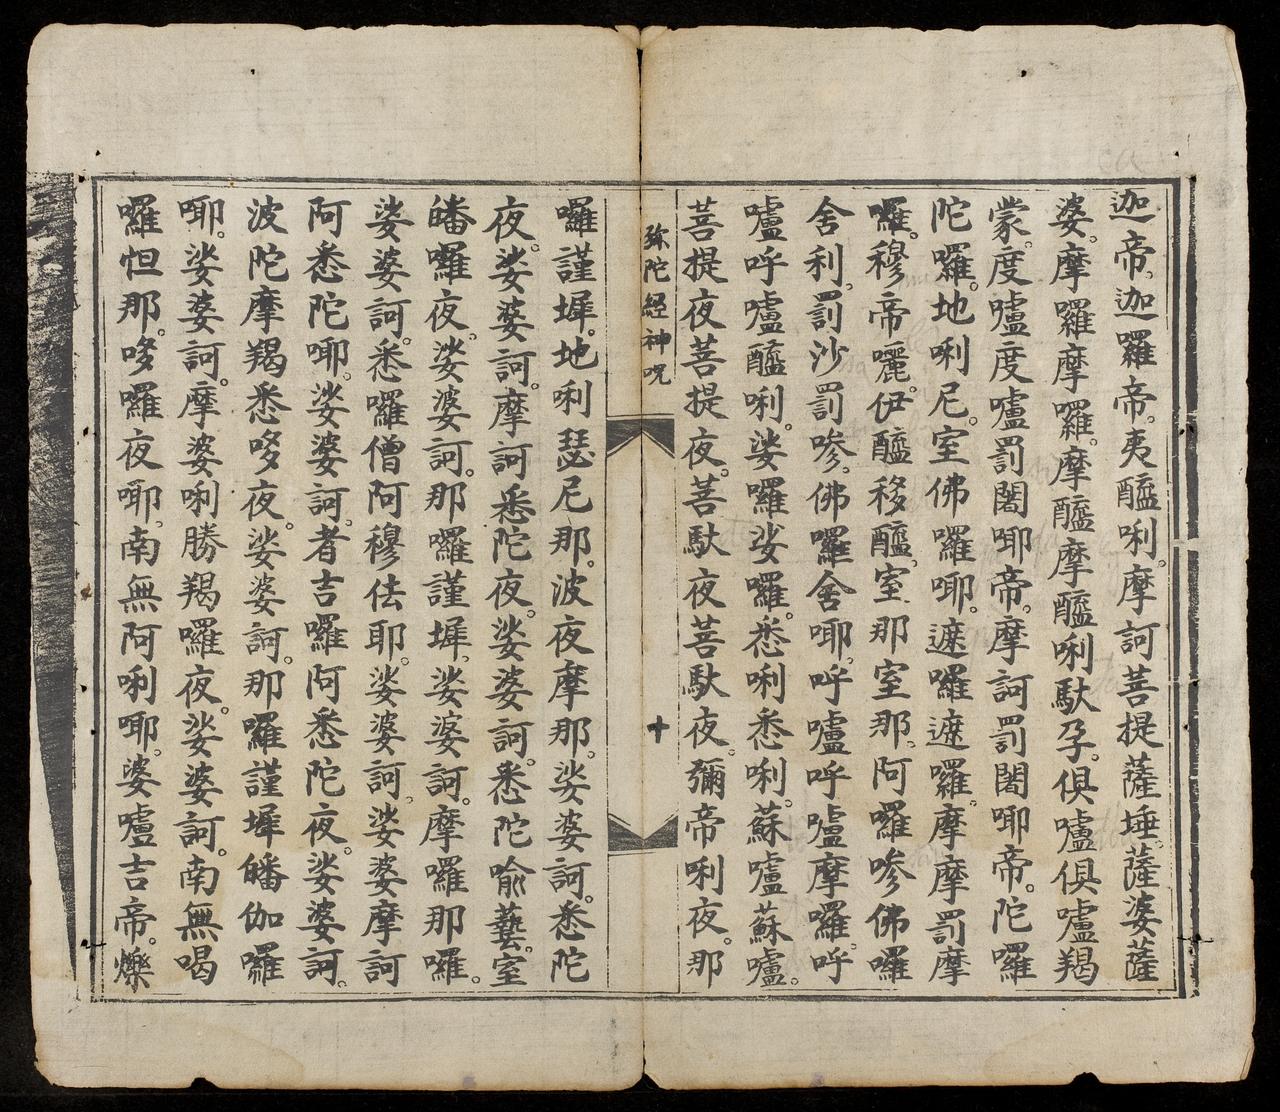 迦帝。迦羅帝。夷醯唎。摩訶菩提薩埵。薩婆薩
婆。摩囉摩囉。摩醯摩醯唎馱孕。俱嚧俱嚧羯
蒙。度嚧度嚧罰闍耶帝。摩訶罰闍耶帝。陀囉
陀囉。地唎尼。室佛囉耶。遮囉遮囉。摩摩罰摩
囉。穆帝囇。伊醯移醯。室那室那。阿囉嘇佛囉
舍利。罰沙罰嘇。佛囉舍耶。呼嚧呼嚧摩囉。呼
嚧呼嚧醯唎。娑囉娑囉。悉唎悉唎。蘇嚧蘇嚧。
菩提夜菩提夜。菩馱夜菩馱夜。彌帝唎夜。那
弥陀經神呪
十
囉謹墀。地唎瑟尼那。波夜摩那。娑婆訶。悉陀
夜。娑婆訶。摩訶悉陀夜。娑婆訶。悉陀喻藝。室
皤囉夜。娑婆訶。那囉謹墀。娑婆訶。摩囉那囉。
娑婆訶。悉囉僧阿穆佉耶。娑婆訶。娑婆摩訶
阿悉陀唧。娑婆訶。者吉囉阿悉陀夜。娑婆訶。
波陀摩羯悉哆夜。娑婆訶。那囉謹墀皤伽囉
唧。娑婆訶。摩婆唎勝羯囉夜。娑婆訶。南無喝
囉怛那。哆囉夜唧。南無阿唎唧。婆嚧吉帝。爍